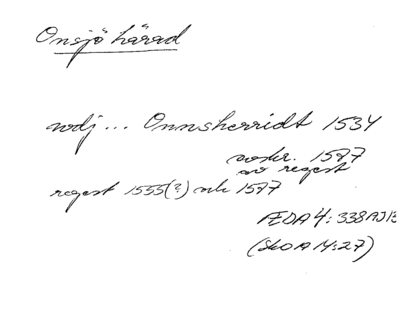 Onsjö härad
vdj... Onnsherridt 1534
avskr. 1597
av regest
regest 1555(?) och 1597
ÆDA 4: 338
(SkOA 14:27)